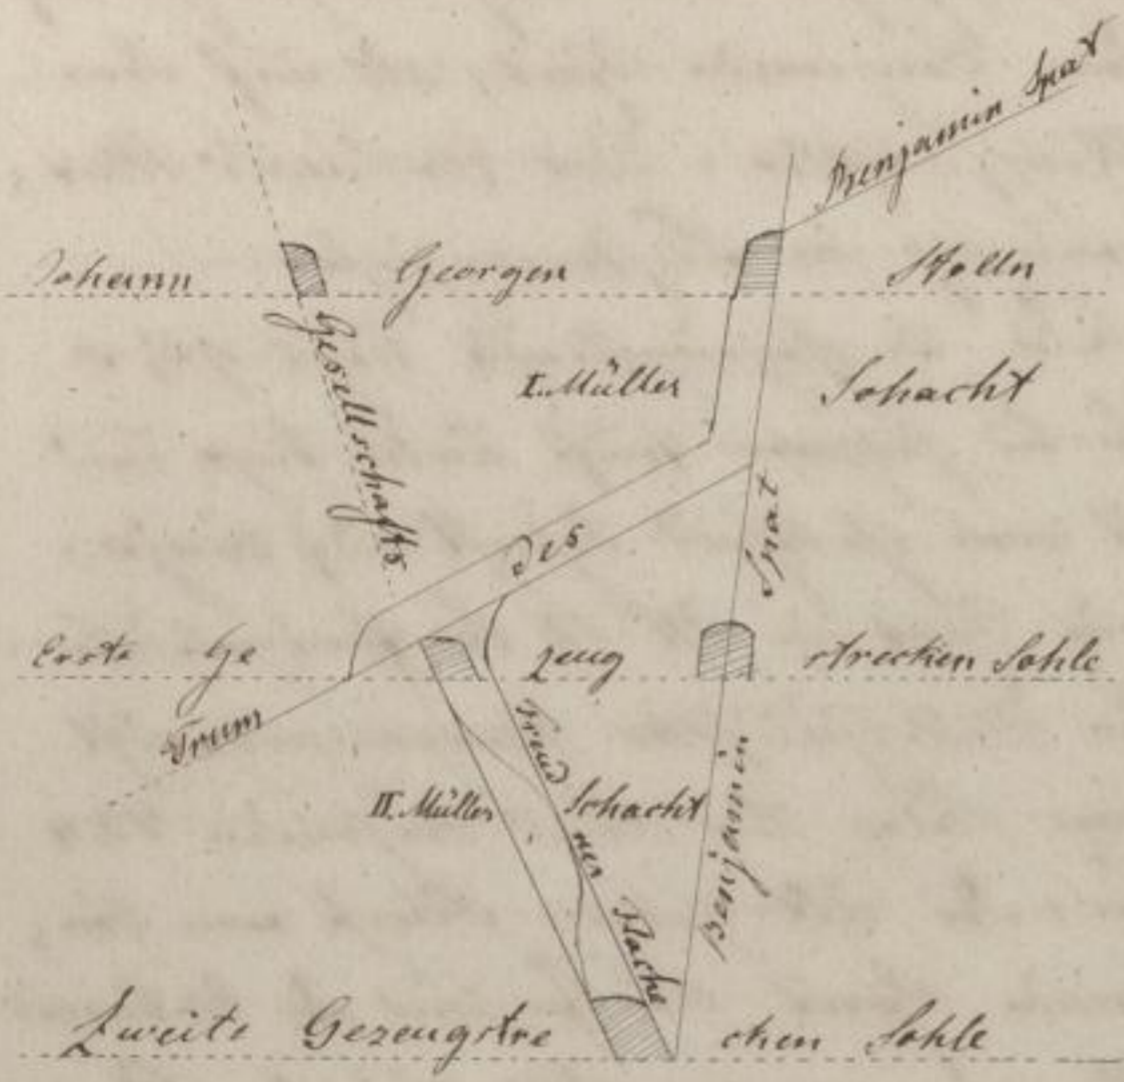 Benjamin Spat
Johann Georgen Stolln
Gesellschafts
I. Müller Schacht
des
Spat
Erste Ge zeug strecken Sohle
Trum
Freud
II. Müller Schacht
ner
Flache
Benjamin
Zweite Gezeugstre cken Sohle